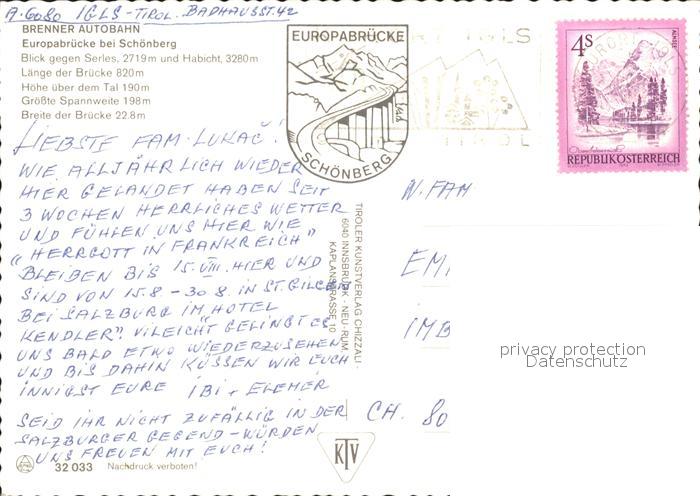 A-6080 IGLS-TIROL. BADHAUSST. 42
BRENNER AUTOBAHN
Europabrücke bei Schönberg
Blick gegen Serles, 2719 m und Habicht, 3280 m
Länge der Brücke 820 m
Höhe über dem Tal 190 m
Größte Spannweite 198 m
Breite der Brücke 22.8 m
EUROPABRÜCKE
SCHÖNBERG
IGLS
TIROL
4S
REPUBLIK ÖSTERREICH
LIEBSTE FAM. LUKAČ!
WIE ALLJÄHRLICH WIEDER
HIER GELANDET HABEN SEIT
3 WOCHEN HERRLICHES WETTER
UND FÜHLEN UNS HIER WIE
"HERRGOTT IN FRANKREICH"
BLEIBEN BIS 15.VIII. HIER UND
SIND VON 15.8. - 30.8. IN ST. GILGEN
BEI SALZBURG IM "HOTEL
KENDLER". VILEICHT GELINGT ES
UNS BALD ETWO WIEDERZUSEHEN
UND BIS DAHIN KÜSSEN WIR EUCH
INNIGST EURE IBI + ELEMÉR
SEID IHR NICHT ZUFÄLLIG IN DER
SALZBURGER GEGEND - WÜRDEN
UNS FREUEN MIT EUCH!
TIROLER KUNSTVERLAG CHIZZALI
6040 INNSBRUCK - NEU-RUM
KAPLANSTRASSE 10
W. FAM
EMI
IMB
CH. 80
privacy protection
Datenschutz
KTV
32 033 Nachdruck verboten!